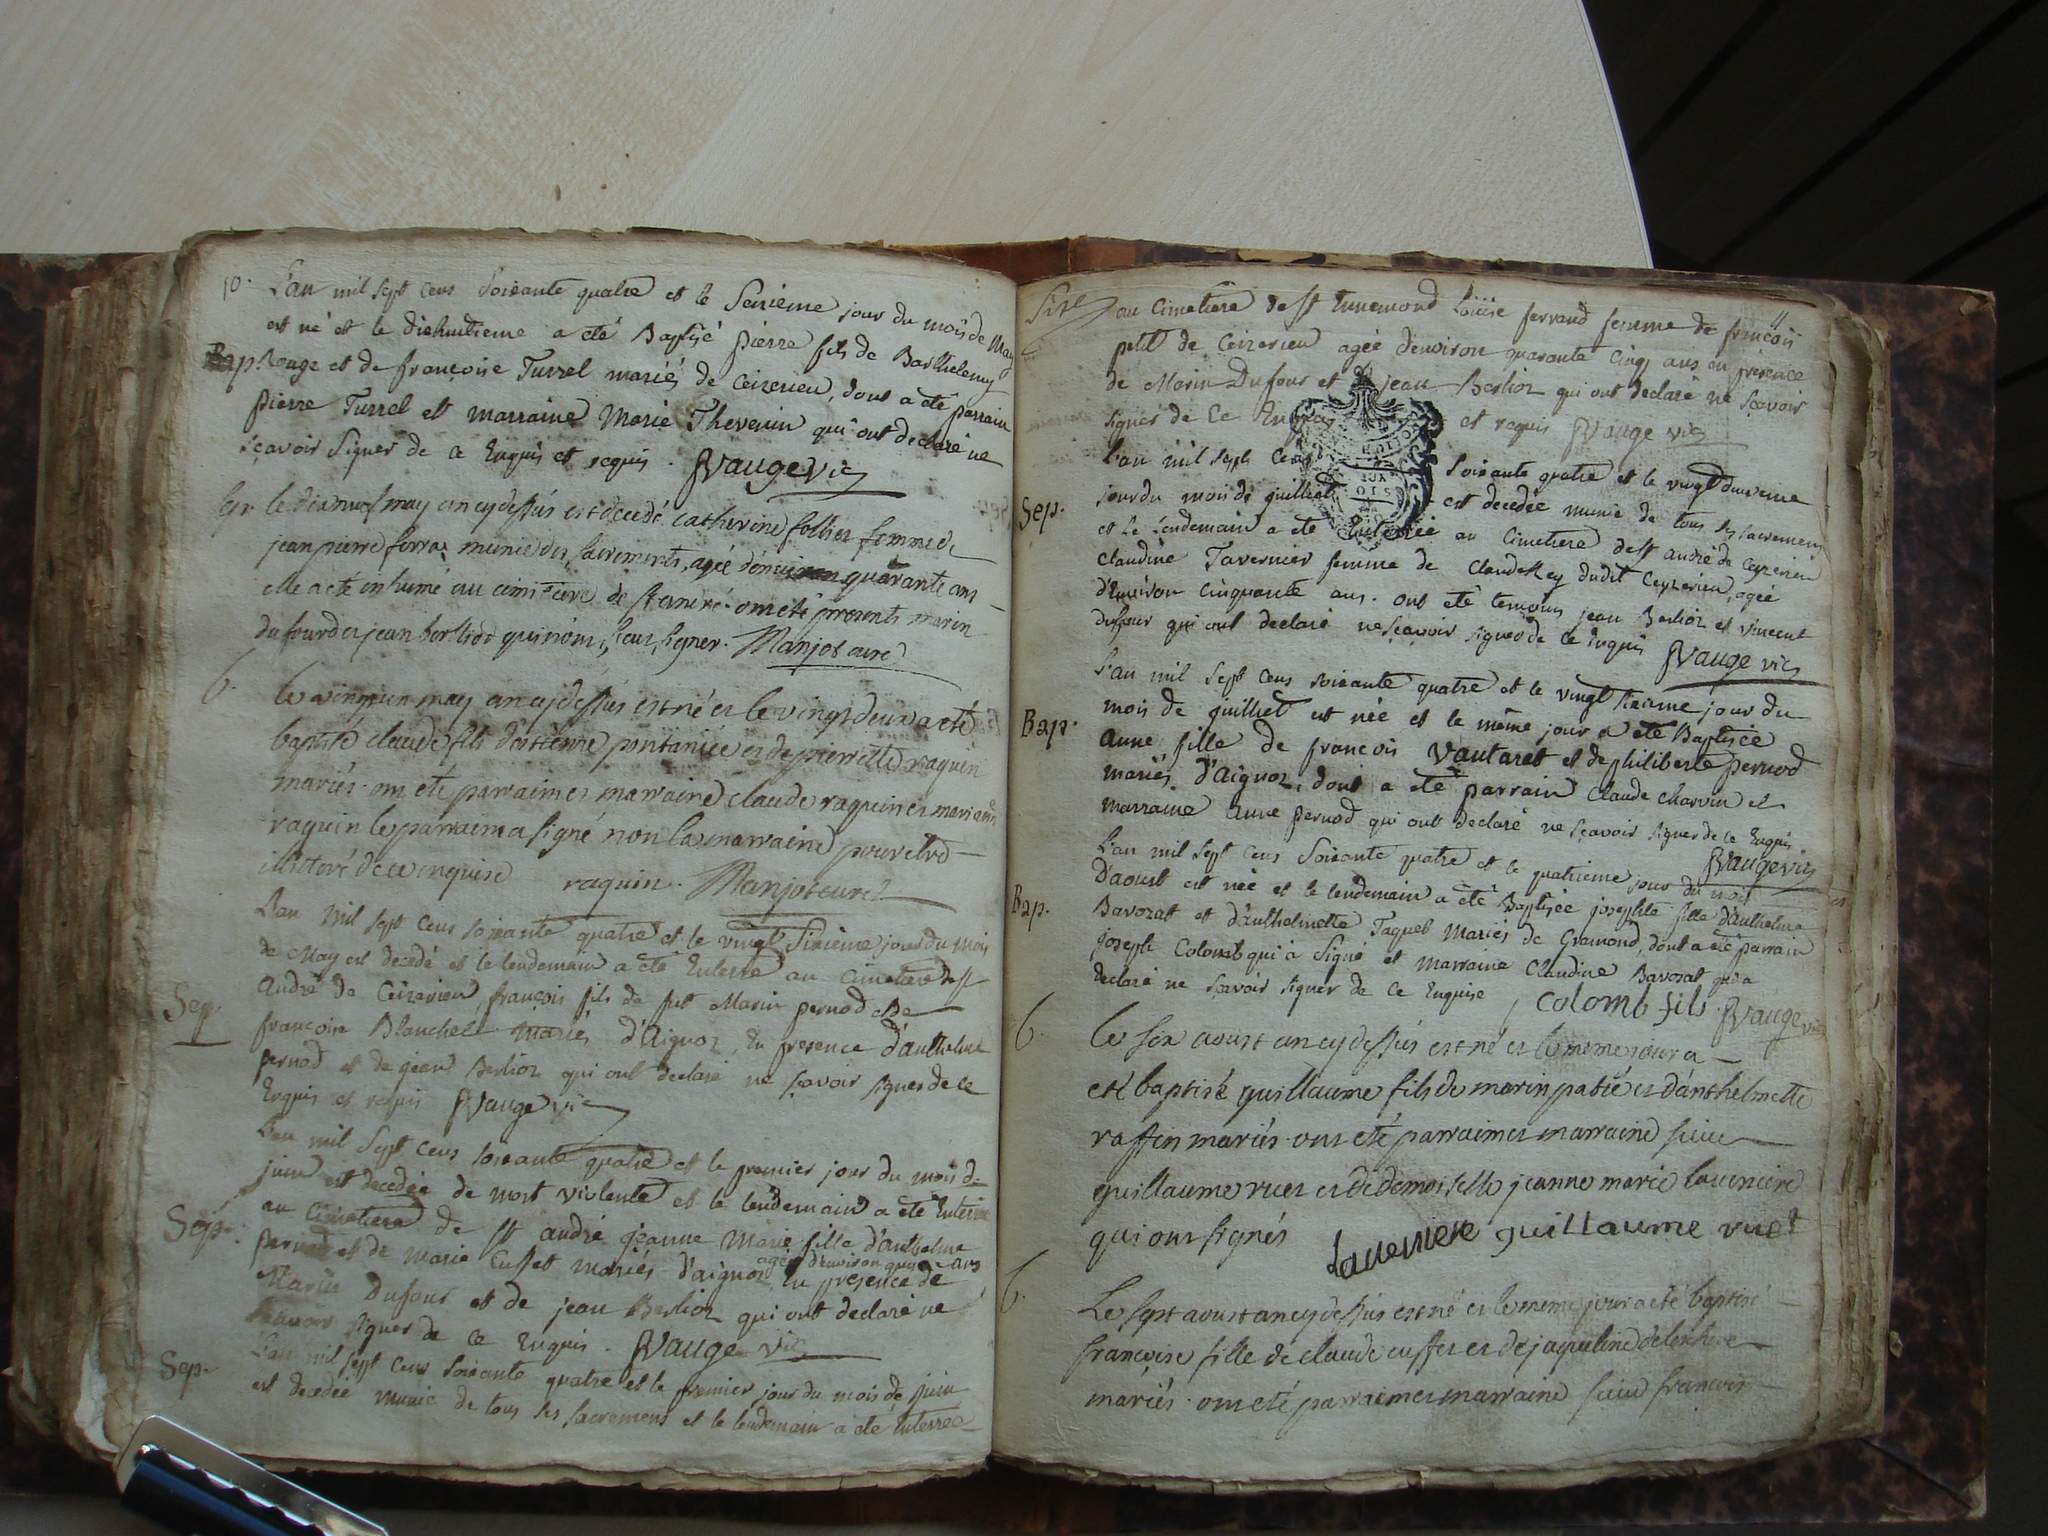 10.
L'an mil sept cens soixante quatre et le seizième jour du mois de May
est né et le dixhuitieme a eté Baptisé pierre fils de Barthelemy
Bap. Rouge et de françoise Turrel mariés de Ceizerieu, dont a eté parrain
pierre Turrel et marraine Marie Thevenin qui ont declaré ne
sçavoir signer de ce Enquis et requis. Vauge vic
Sep. le dixneuf may an cy dessus est decedé catherine follier femme de
jean pierre ferraz munie des sacrements, agée d'environ quarante ans
elle a eté inhumé au cimitiere de st André. ont eté presents marin
dufour et jean berlioz qui n'ont sceu signer. Manjot curé
b. le vingt un may an cy dessus est né et le vingt deux a eté
baptisé claude fils d'estienne pontanier et de pierrette raquin
mariés. ont eté parrain et marraine claude raquin et
raquin le parrain a signé non la marraine pour être
illitéré de ce enquise raquin. Manjot curé
L'an mil sept cens soixante quatre et le vingt sixième jour du mois
de May est decedé et le lendemain a eté Enterré au cimetiere de st
Sep. André de Ceizerieu françois fils de feu Marin pernod et de
françoise Blanchet mariés d'Aignoz, En presence d'anthelme
pernod et de jean Berlioz qui ont declaré ne sçavoir signer de ce
Enquis et requis Vauge vic
L'an mil sept cens soixante quatre et le premier jour du mois de
juin est decedée de mort violente et le lendemain a eté Enterrée
Sep. au cimetiere de st andré jeanne Marie fille d'anthelme
pernod et de marie Cusset mariés d'aignoz En presence de
agée d'environ ans
Marin Dufour et de jean Berlioz qui ont declaré ne
sçavoir signer de ce Enquis. Vauge vic
Sep. L'an mil sept cens soixante quatre et le premier jour du mois de juin
est decedée munie de tous ses sacremens et le lendemain a eté Enterrée
11
au Cimetiere de st Ennemond Louise ferrand femme de françois
petit de Ceizerieu agée d'environ quarante cinq ans en présence
de Marin Dufour et jean Berlioz qui ont declaré ne sçavoir
signer de ce Enquis et requis Vauge vic
L'an mil sept cens soixante quatre et le vingt deuxieme
Sep. jour du mois de juilliet est decedée munie de tous ses sacremens
et le lendemain a eté Enterrée au Cimetiere de st andré de Ceyzerieu
claudine Tavernier femme de claude Rey dudit Ceyzerieu, agée
d'Environ cinquante ans. ont eté temoins jean Berlioz et vincent
dufour qui ont declaré ne sçavoir signer de ce Enquis Vauge vic
L'an mil sept cens soixante quatre et le vingt sixieme jour du
Bap. mois de juilliet est née et le même jour a eté Baptisée
Anne fille de francois Vautaret et de philiberte pernod
mariés d'Aignoz, dont a eté parrain claude charvin et
marraine anne pernod qui ont declaré ne sçavoir signer de ce Enquis
Vauge vic
L'an mil sept cens soixante quatre et le quatrieme jour du mois
Bap. D'aoust est née et le lendemain a eté Baptisée josephte fille d'anthelme
Bavozat et d'anthelmette Taquet Mariés de Gramond, dont a eté parrain
joseph Colomb qui a signé et marraine Claudine Bavozat qui a
declaré ne sçavoir signer de ce Enquise, colomb fils Vauge vic
b. le six aoust an cy dessus est né et le meme jour a
eté baptisé guillaume fils de marin patié et d'anthelmette
raffin mariés. ont eté parrain et marraine sieur
guillaume vuet et demoiselle jeanne marie laverniere
qui ont signés Laverniere guillaume vuet
b. Le sept aoust an cy dessus est né et le meme jour a eté baptisé
françoise fille de claude cusset et de jaqueline
mariés. ont eté parrain et marraine sieur francois